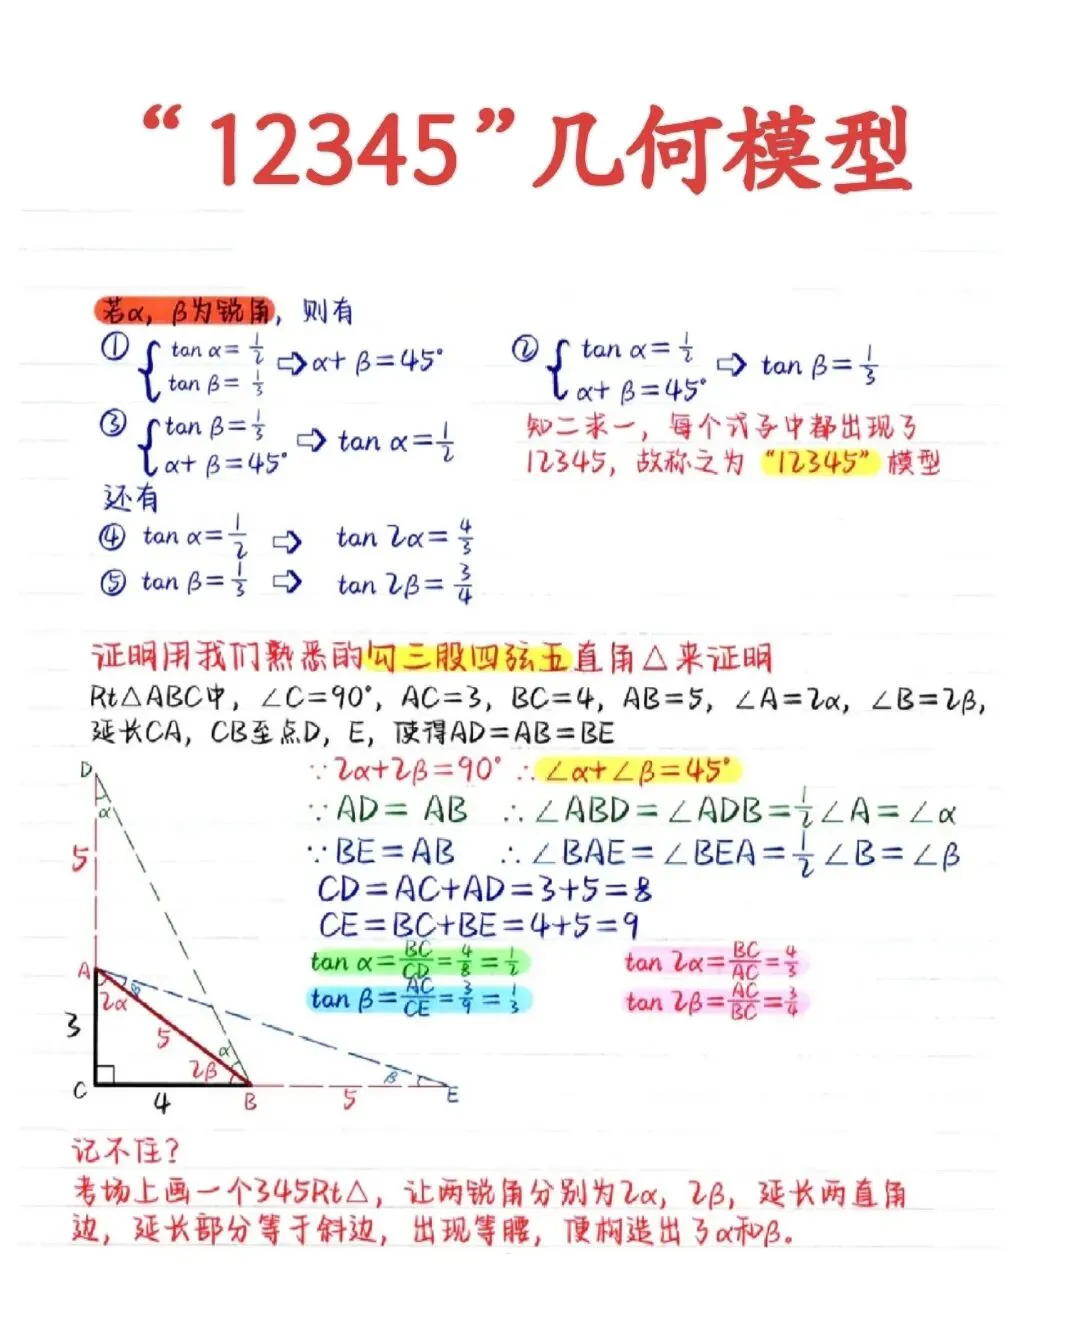 “12345”几何模型
若α，β为锐角，则有
① { tan α=1/2 tan β=1/3 ⇨ α+β=45°
② { tan α=1/2 α+β=45° ⇨ tan β=1/3
③ { tan β=1/3 α+β=45° ⇨ tan α=1/2
知二求一，每个式子中都出现了
12345，故称之为“12345”模型
还有
④ tan α=1/2 ⇨ tan 2α=4/3
⑤ tan β=1/3 ⇨ tan 2β=3/4
证明用我们熟悉的勾三股四弦五直角△来证明
Rt△ABC中，∠C=90°，AC=3，BC=4，AB=5，∠A=2α，∠B=2β，
延长CA，CB至点D，E，使得AD=AB=BE
∵2α+2β=90° ∴∠α+∠β=45°
∵AD=AB ∴∠ABD=∠ADB=1/2∠A=∠α
∵BE=AB ∴∠BAE=∠BEA=1/2∠B=∠β
CD=AC+AD=3+5=8
CE=BC+BE=4+5=9
tan α=BC/CD=4/8=1/2
tan 2α=BC/AC=4/3
tan β=AC/CE=3/9=1/3
tan 2β=AC/BC=3/4
D
α
5
A
2α
β
3
5
α
2β
β
C
4
B
5
E
记不住？
考场上画一个345Rt△，让两锐角分别为2α，2β，延长两直角
边，延长部分等于斜边，出现等腰，便构造出了α和β。